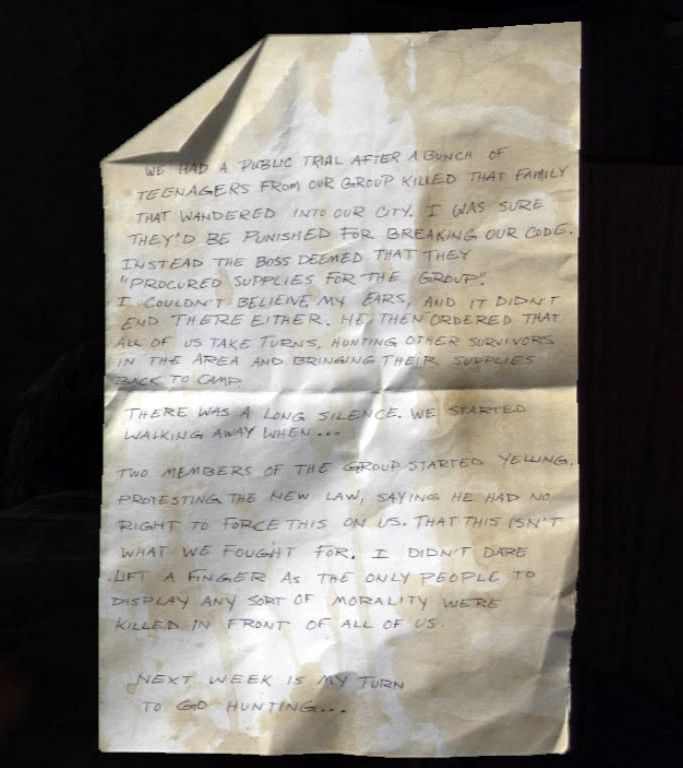 WE HAD A PUBLIC TRIAL AFTER A BUNCH OF
TEENAGERS FROM OUR GROUP KILLED THAT FAMILY
THAT WANDERED INTO OUR CITY. I WAS SURE
THEY'D BE PUNISHED FOR BREAKING OUR CODE.
INSTEAD THE BOSS DEEMED THAT THEY
"PROCURED SUPPLIES FOR THE GROUP".
I COULDN'T BELIEIVE MY EARS, AND IT DIDN'T
END THERE EITHER. HE THEN ORDERED THAT
ALL OF US TAKE TURNS, HUNTING OTHER SURVIVORS
IN THE AREA AND BRINGING THEIR SUPPLIES
BACK TO CAMP.
THERE WAS A LONG SILENCE. WE STARTED
WALKING AWAY WHEN...
TWO MEMBERS OF THE GROUP STARTED YELLING,
PROTESTING THE NEW LAW, SAYING HE HAD NO
RIGHT TO FORCE THIS ON US. THAT THIS ISN'T
WHAT WE FOUGHT FOR. I DIDN'T DARE
LIFT A FINGER AS THE ONLY PEOPLE TO
DISPLAY ANY SORT OF MORALITY WERE
KILLED IN FRONT OF ALL OF US.
NEXT WEEK IS MY TURN
TO GO HUNTING...